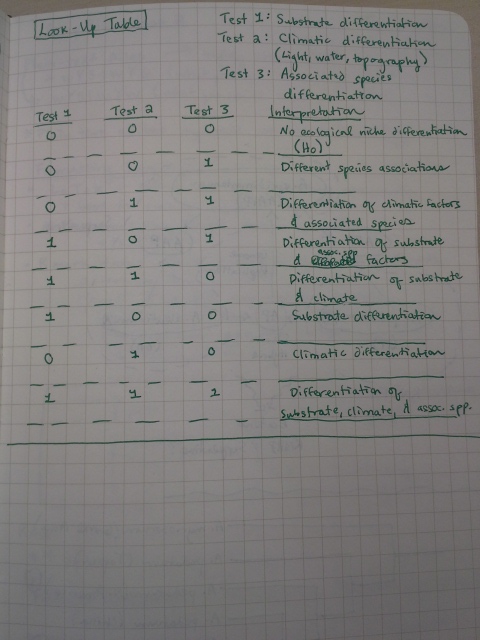 Look-Up Table
Test 1: Substrate differentiation
Test 2: Climatic differentiation
(Light, water, topography)
Test 3: Associated species
differentiation
Test 1 Test 2 Test 3 Interpretation
0 0 0 No ecological niche differentiation
(Ho)
0 0 1 Different species associations
0 1 1 Differentiation of climatic factors
& associated species
1 0 1 Differentiation of substrate
& assoc. spp. factors
1 1 0 Differentiation of substrate
& climate
1 0 0 Substrate differentiation
0 1 0 Climatic differentiation
1 1 1 Differentiation of
substrate, climate, & assoc. spp.